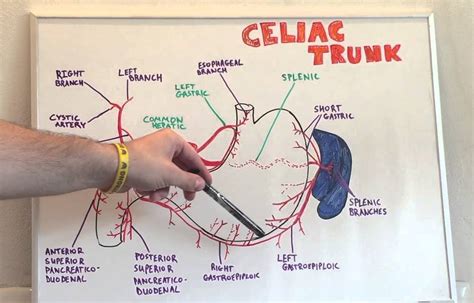 CELIAC
TRUNK
ESOPHAGEAL
BRANCH
LEFT
BRANCH
RIGHT
BRANCH
SPLENIC
LEFT
GASTRIC
CYSTIC
ARTERY
COMMON
HEPATIC
SHORT
GASTRIC
SPLENIC
BRANCHES
ANTERIOR
SUPERIOR
PANCREATICO-
DUODENAL
POSTERIOR
SUPERIOR
PANCREATICO-
DUODENAL
RIGHT
GASTROEPIPLOIC
LEFT
GASTROEPIPLOIC